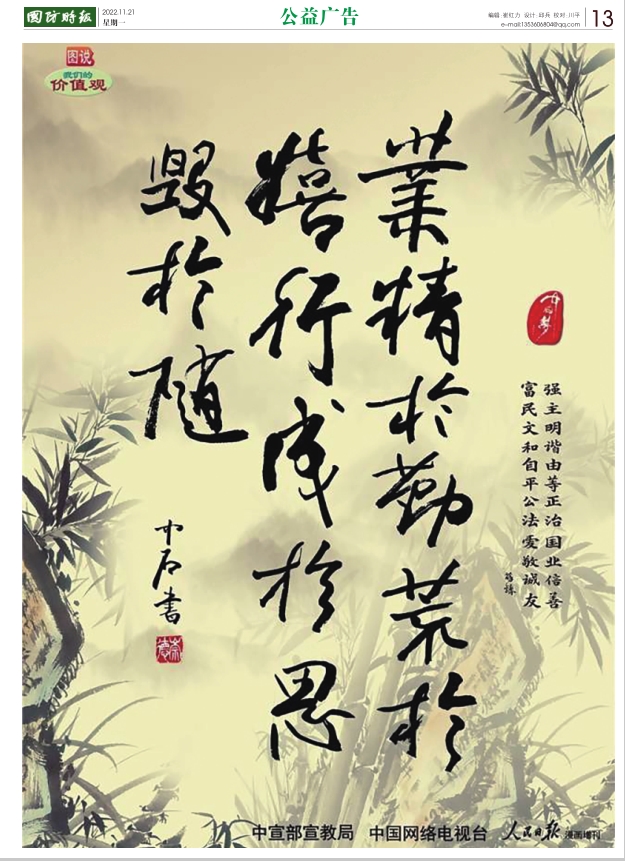 國防時報
2022.11.21
星期一
公益广告
编辑:崔红力 设计:邱兵 校对:川平
e-mail:1353606804@qq.com
13
图说
我们的
价值观
業精於勤荒於
嬉行成於思
毁於随
中石書
中国梦
强主明谐由等正治国业信善
富民文和自平公法爱敬诚友
中宣部宣教局 中国网络电视台 人民日报 漫画增刊